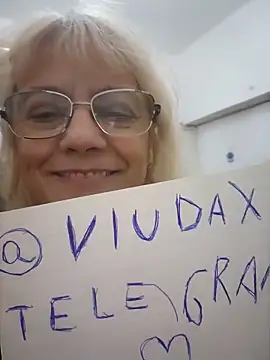 @VIUDAX
TELEGRAM